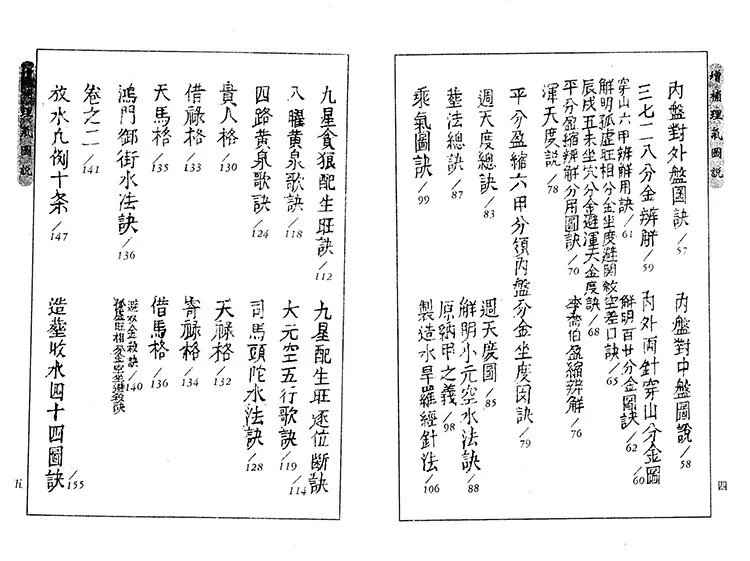 增補理氣圖說
內盤對外盤圖訣/57
內盤對中盤圖說/58
三七二八分金辨解/59
內外兩針穿山分金圖/60
穿山六甲辨解用訣/61
解明百廿分金圖訣/62
解明孤虛旺相分金坐度避關煞空差口訣/65
辰戌丑未坐穴分金避渾天金度訣/68
平分盈縮辨解分用圖訣/70
李喬伯盈縮辨解/76
渾天度說/78
平分盈縮六甲分領內盤分金坐度図訣/79
週天度總訣/83
週天度圖/85
塟法總訣/87
解明小元空水法訣/88
原納甲之義/98
乘氣圖訣/99
製造水旱羅經針法/106
四
理氣圖說
九星貪狼配生旺訣/112
九星配生旺逐位斷訣/114
八曜黃泉歌訣/118
大元空五行歌訣/119
四路黃泉歌訣/124
司馬頭陀水法訣/128
貴人格/130
天祿格/132
借祿格/133
寄祿格/134
天馬格/135
借馬格/136
鴻門御街水法訣/136
避双金殺訣/140
孤虛旺相分金
卷之二/141
放水凡例十条/147
造塟收水四十四圖訣/155
五